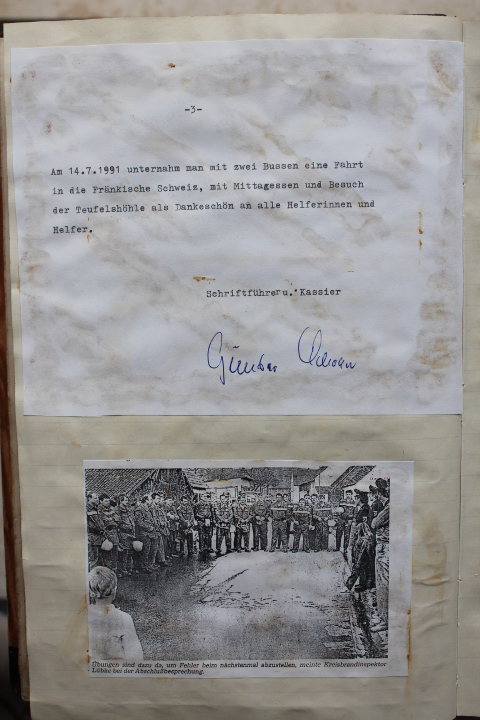 -3-
Am 14.7.1991 unternahm man mit zwei Bussen eine Fahrt
in die Fränkische Schweiz, mit Mittagessen und Besuch
der Teufelshöhle als Dankeschön an alle Helferinnen und
Helfer.
Schriftführer u. Kassier
Günther
Übungen sind dazu da, um Fehler beim nächstenmal abzustellen, meinte Kreisbrandinspektor
Lübke bei der Abschlußbesprechung.